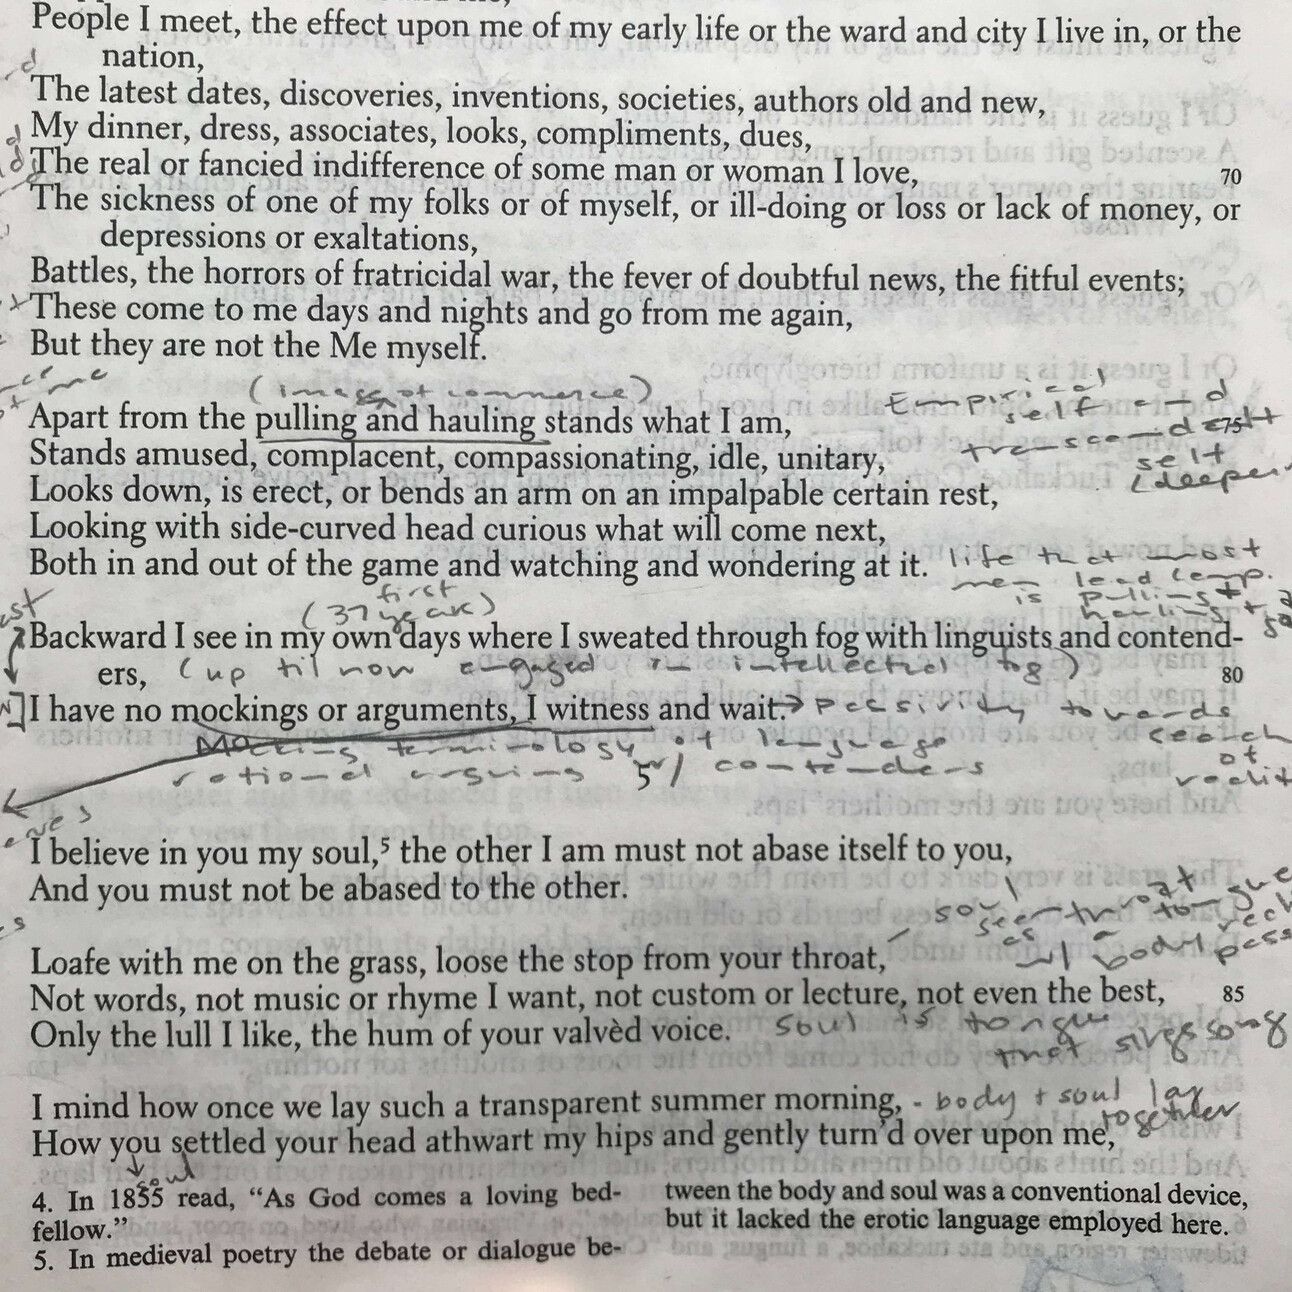 People I meet, the effect upon me of my early life or the ward and city I live in, or the
nation,
The latest dates, discoveries, inventions, societies, authors old and new,
My dinner, dress, associates, looks, compliments, dues,
The real or fancied indifference of some man or woman I love, 70
The sickness of one of my folks or of myself, or ill-doing or loss or lack of money, or
depressions or exaltations,
Battles, the horrors of fratricidal war, the fever of doubtful news, the fitful events;
These come to me days and nights and go from me again,
But they are not the Me myself.
(images of commerce)
Empirical
self and
Apart from the pulling and hauling stands what I am, 75
transcendent
self
(deeper
Stands amused, complacent, compassionating, idle, unitary,
Looks down, is erect, or bends an arm on an impalpable certain rest,
Looking with side-curved head curious what will come next,
Both in and out of the game and watching and wondering at it. life that most
men lead comp.
is pulling +
hauling +
first
(37 years)
Backward I see in my own days where I sweated through fog with linguists and contend-
ers, (up til now engaged in intellectual fog) 80
I have no mockings or arguments, I witness and wait. → passivity towards
search
of
realit
Mocking terminology of language
rational arguing w/ contenders
I believe in you my soul,⁵ the other I am must not abase itself to you,
And you must not be abased to the other.
soul
seen
as
throat
tongue
w/ body
Loafe with me on the grass, loose the stop from your throat,
Not words, not music or rhyme I want, not custom or lecture, not even the best, 85
Only the lull I like, the hum of your valvèd voice. soul is tongue
that sings song
I mind how once we lay such a transparent summer morning, - body + soul lay
together
How you settled your head athwart my hips and gently turn'd over upon me,
soul
4. In 1855 read, “As God comes a loving bed-
fellow.”
5. In medieval poetry the debate or dialogue be-
tween the body and soul was a conventional device,
but it lacked the erotic language employed here.